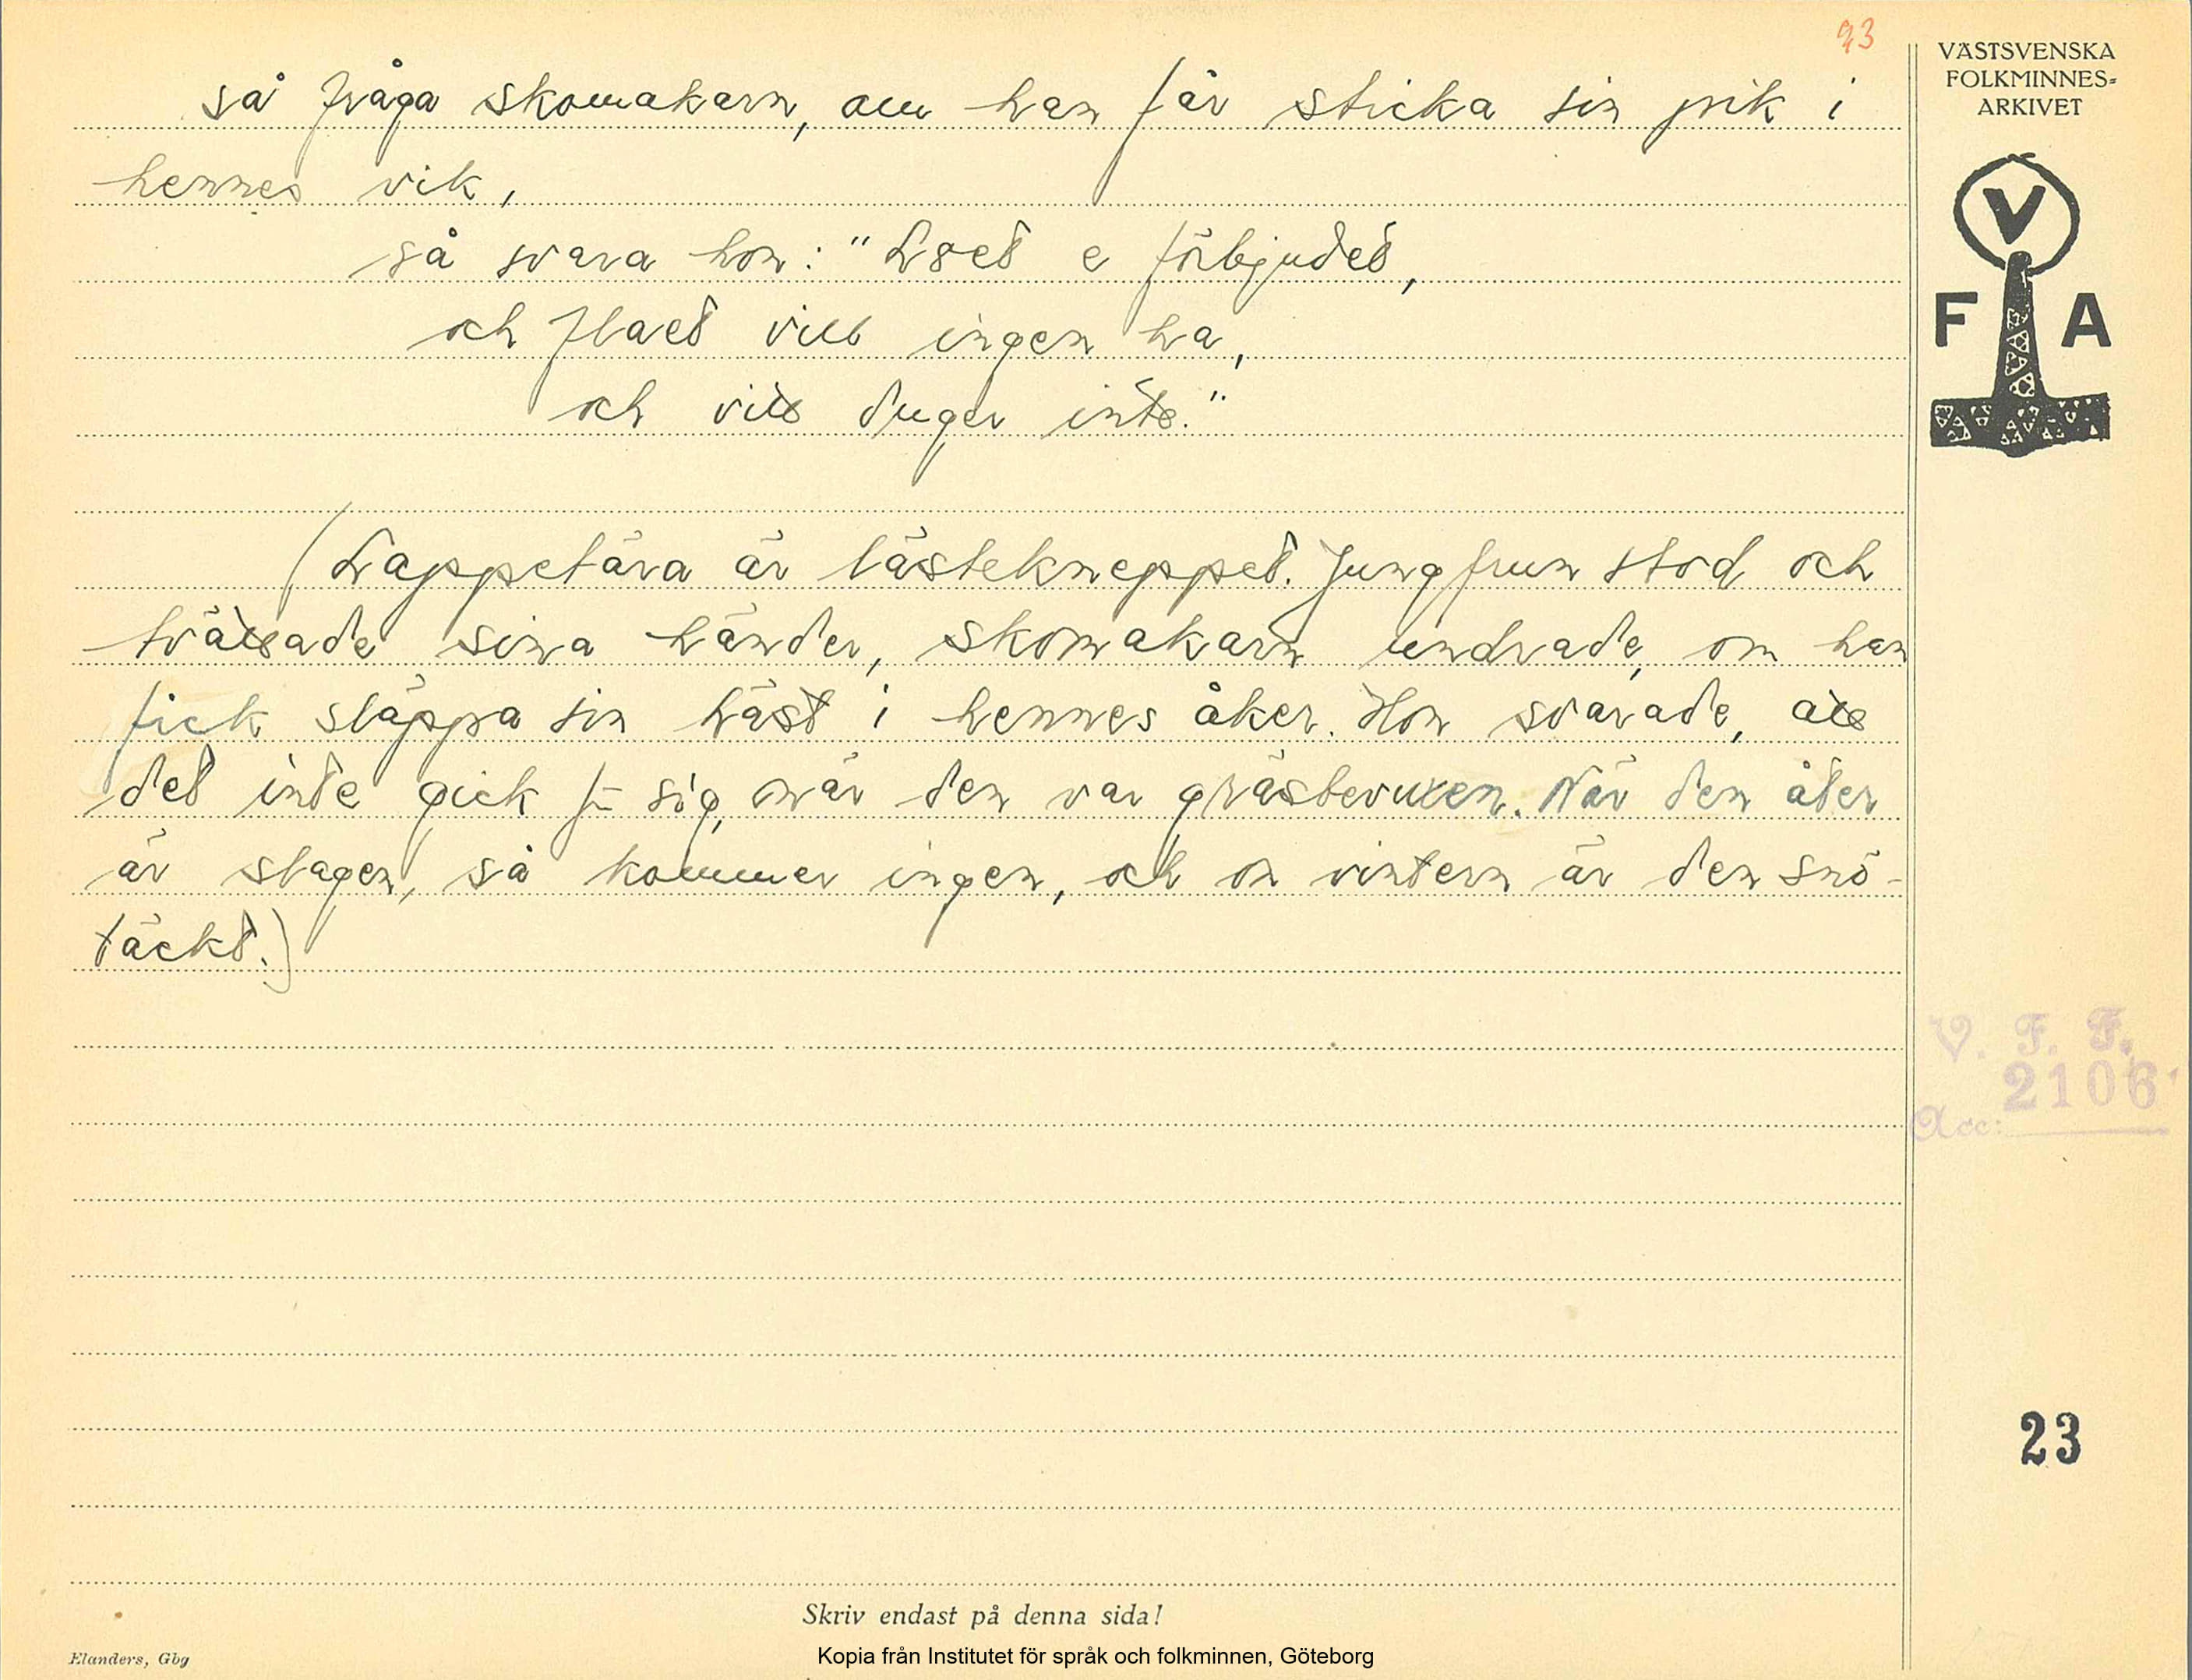 23
VÄSTSVENSKA
FOLKMINNES=
ARKIVET
V
F A
så fråga skomakarn, om han får sticka sin pik i
hennes vik,
så svara hon: " e förbjudet,
och flaet vill ingen ha,
och vitt duger inte."
(Lappetära är lästekneppet. Jungfrun stod och
tvättade sina händer, skomakarn undrade, om han
fick släppa sin häst i hennes åker. Hon svarade, att
det inte gick f– sig, när den var gräsbevuxen. När den åter
är slagen, så kommer ingen, och om vintern är den snö-
täckt.)
V. F. F.
2106
Acc:
23
Skriv endast på denna sida!
Kopia från Institutet för språk och folkminnen, Göteborg
Elanders, Gbg